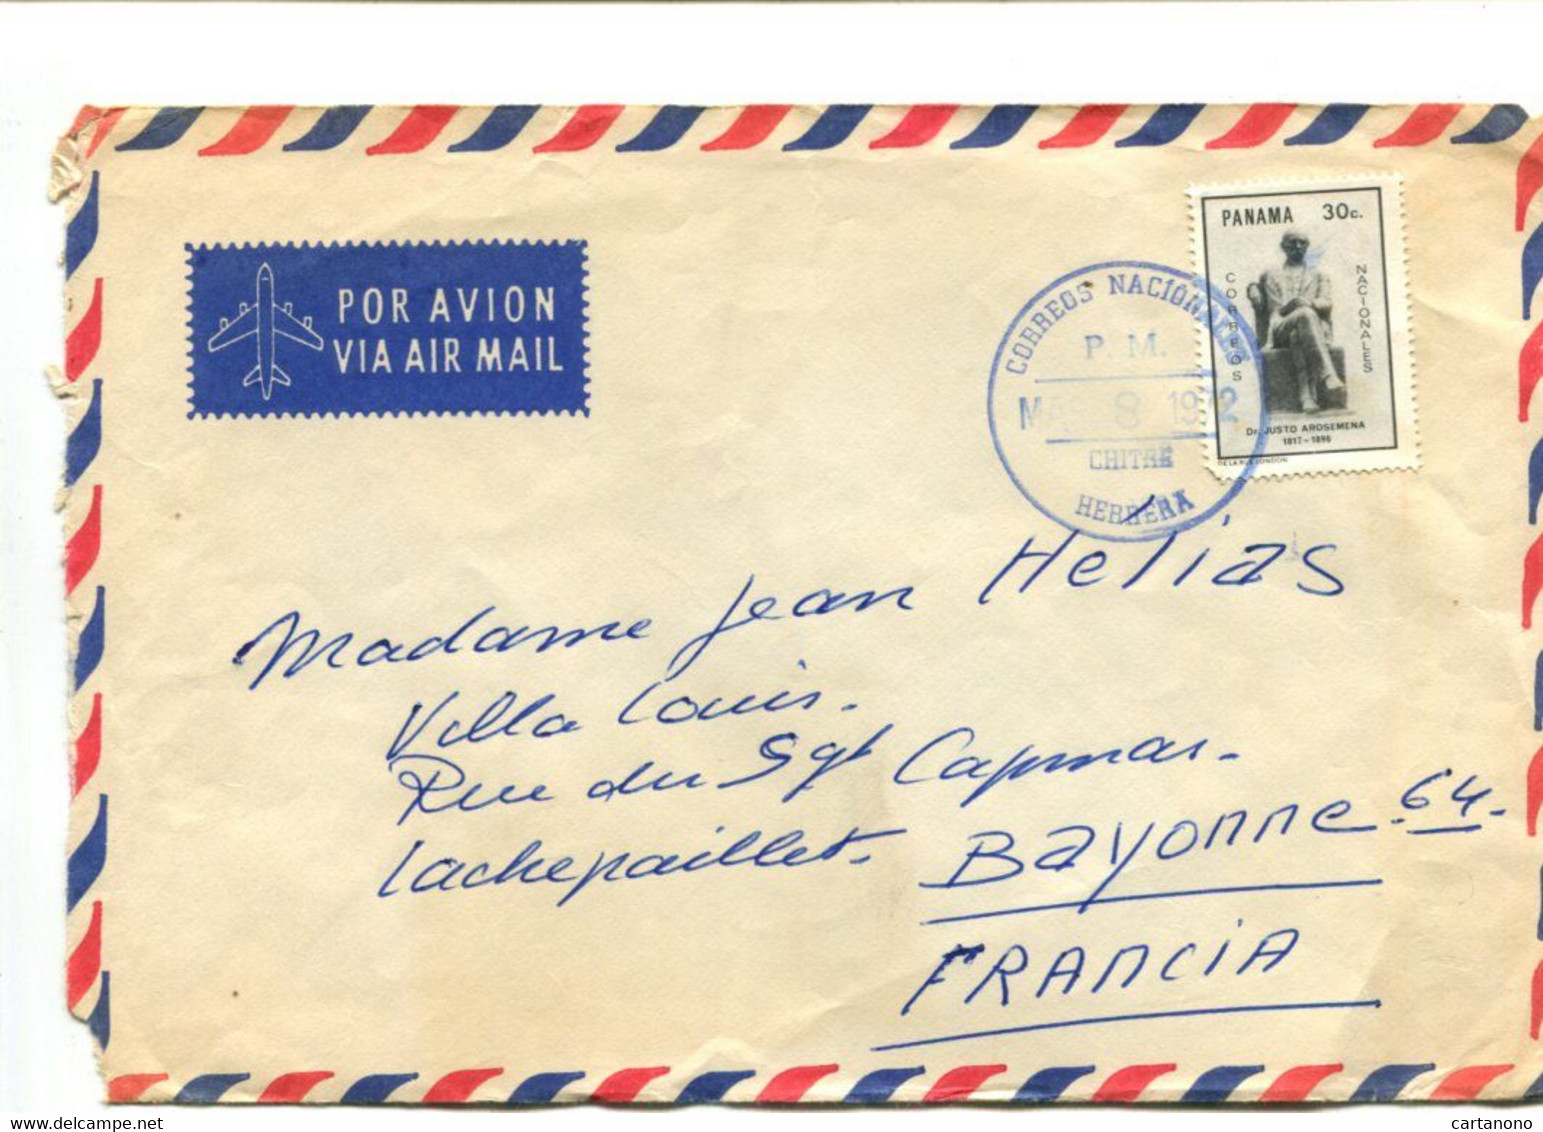 POR AVION
VIA AIR MAIL
CORREOS NACIONALES
P. M.
MAR 8 1972
CHITRÉ
HERRERA
PANAMA 30c.
CORREOS
NACIONALES
Dr. JUSTO AROSEMENA
1817-1896
DE LA RUE LONDON
Madame Jean Hélias
Villa Louis.
Rue du Sgt Capmas.
Lachepaillet.
Bayonne - 64.
FRANCIA
delcampe.net
cartanono